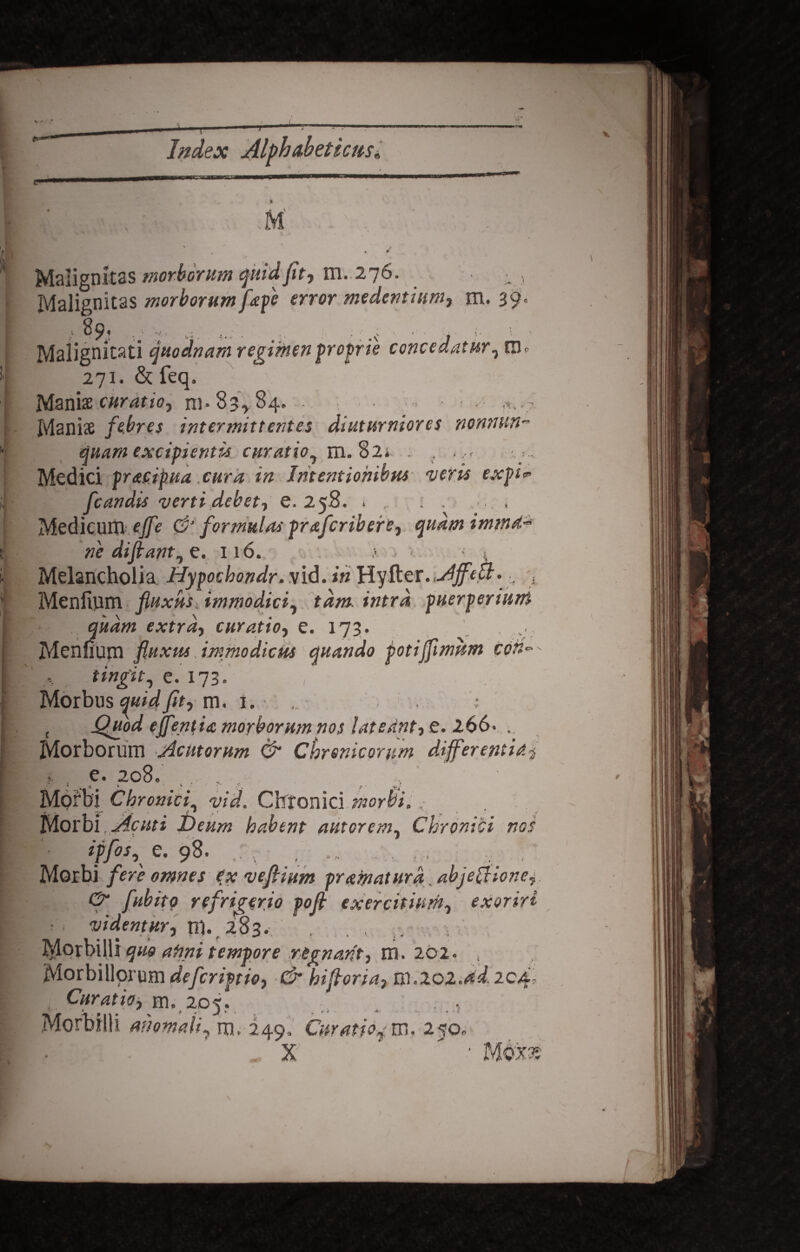 Index Alphabeticus.
M
Malignitas morborum quid ſit, m. 276.
Malignitas morborum ſæpe error medentium, m. 39.
89.
Malignitati quodnam regimen proprie concedatur, m.
271. & ſeq.
Maniæ curatio, m. 83, 84.
Maniæ febres intermittentes diuturniores nonnun-
quam excipientis curatio, m. 82.
Medici præcipua cura in Intentionibus veris expi-
ſcandis verti debet, e. 258.
Medicum eſſe & formulas præſcribere, quàm imma-
ne diſtant, e. 116.
Melancholia Hypochondr. vid. in Hyſter. Affect.
Menſium fluxûs immodici, tàm intrà puerperium
quàm extrà, curatio, e. 173.
Menſium fluxus immodicus quando potiſſimùm con-
tingit, e. 173.
Morbus quid ſit, m. 1.
Quòd eſſentiæ morborum nos lateant, e. 266.
Morborum Acutorum & Chronicorum differentia,
e. 208.
Morbi Chronici, vid. Chronici morbi.
Morbi Acuti Deum habent autorem, Chronici nos
ipſos, e. 98.
Morbi ferè omnes ex veſtium præmaturâ abjectione,
& ſubito refrigerio poſt exercitium, exoriri
videntur, m. 283.
Morbilli quo anni tempore regnant, m. 202.
Morbillorum deſcriptio, & hiſtoria, m. 202. ad 204.
Curatio, m. 205.
Morbilli anomali, m. 249. Curatio, m. 250.
X Moxæ